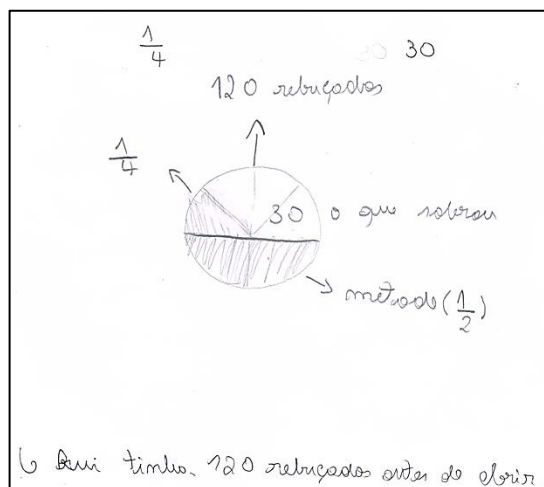 1/4 30
120 rebuçados
1/4
30 o que sobrou
metade (1/2)
Rui tinha 120 rebuçados antes de abrir